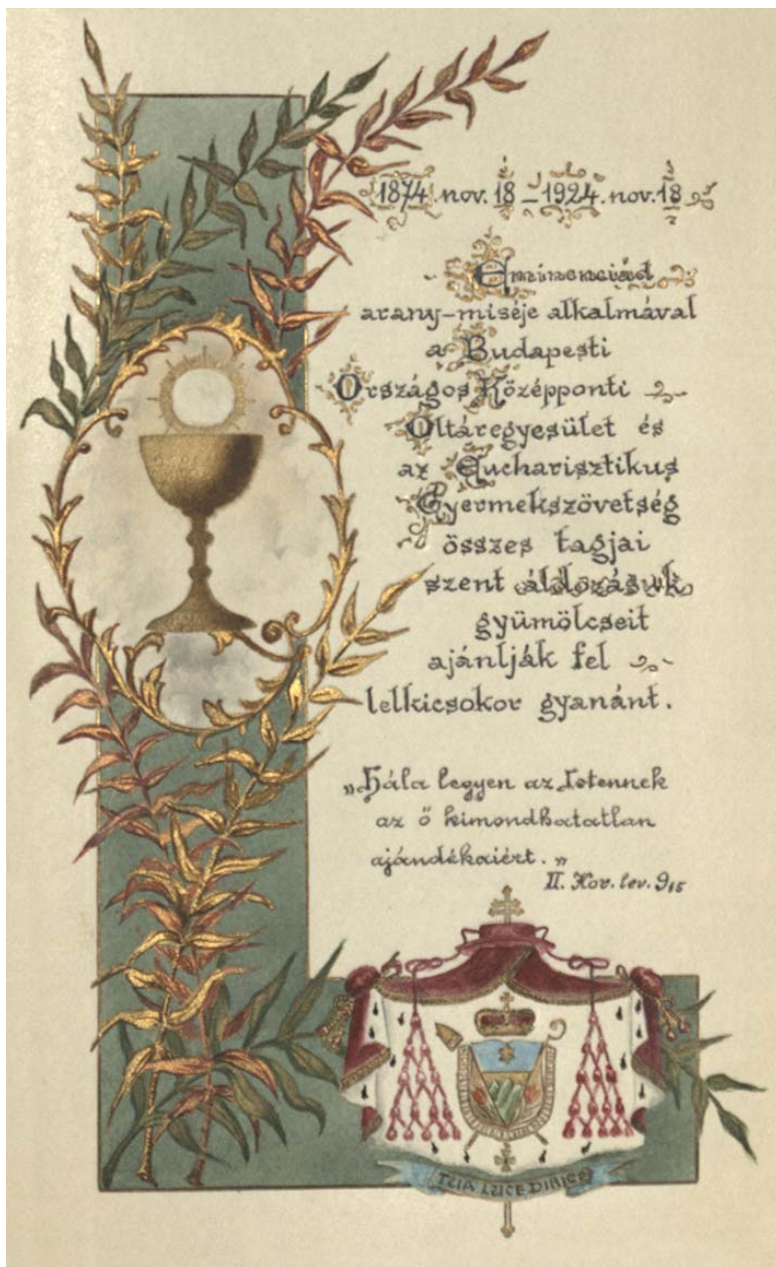 1874. nov. 18 – 1924. nov. 18
Eminenciád
arany-miséje alkalmával
a Budapesti
Országos Középponti
Oltáregyesület és
az Eucharisztikus
Gyermekszövetség
összes tagjai
szent áldozásuk
gyümölcseit
ajánlják fel
lelkicsokor gyanánt.
„Hála legyen az Istennek
az ő kimondhatatlan
ajándékaiért.„
II. Kor. lev. 9,15
TUA LUCE DIRIGE